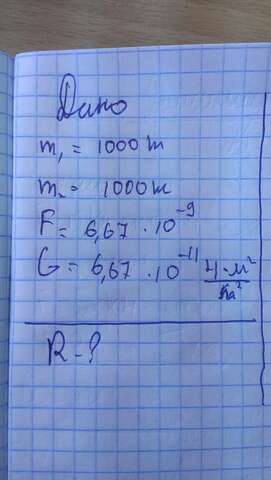 Дано
m₁ = 1000 т
m₂ = 1000 т
F = 6,67 · 10⁻⁹
G = 6,67 · 10⁻¹¹ Н·м²/кг²
R - ?